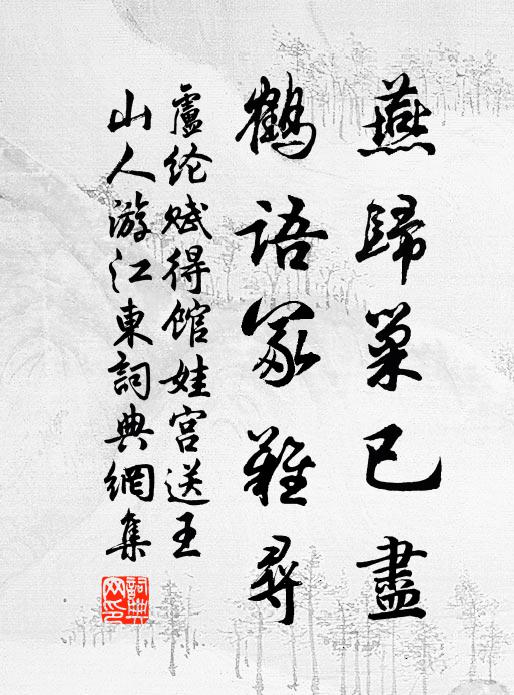 燕歸巢已盡
鶴語冢難尋
盧纶赋得館娃宫送王
山人游江東詞典網集